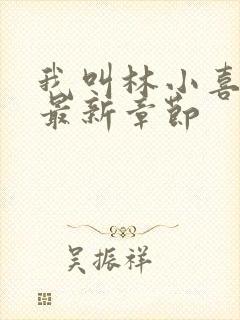 我叫林小喜
最新章节
吴振祥